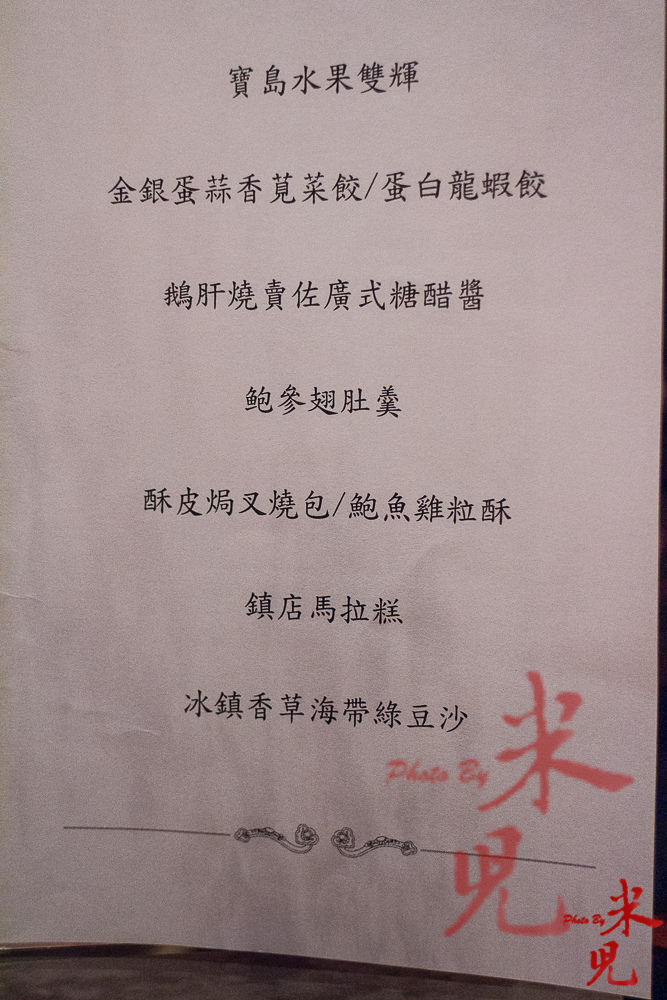 寶島水果雙輝
金銀蛋蒜香莧菜餃/蛋白龍蝦餃
鵝肝燒賣佐廣式糖醋醬
鮑參翅肚羹
酥皮焗叉燒包/鮑魚雞粒酥
鎮店馬拉糕
冰鎮香草海帶綠豆沙
Photo By 米兒
Photo By 米兒